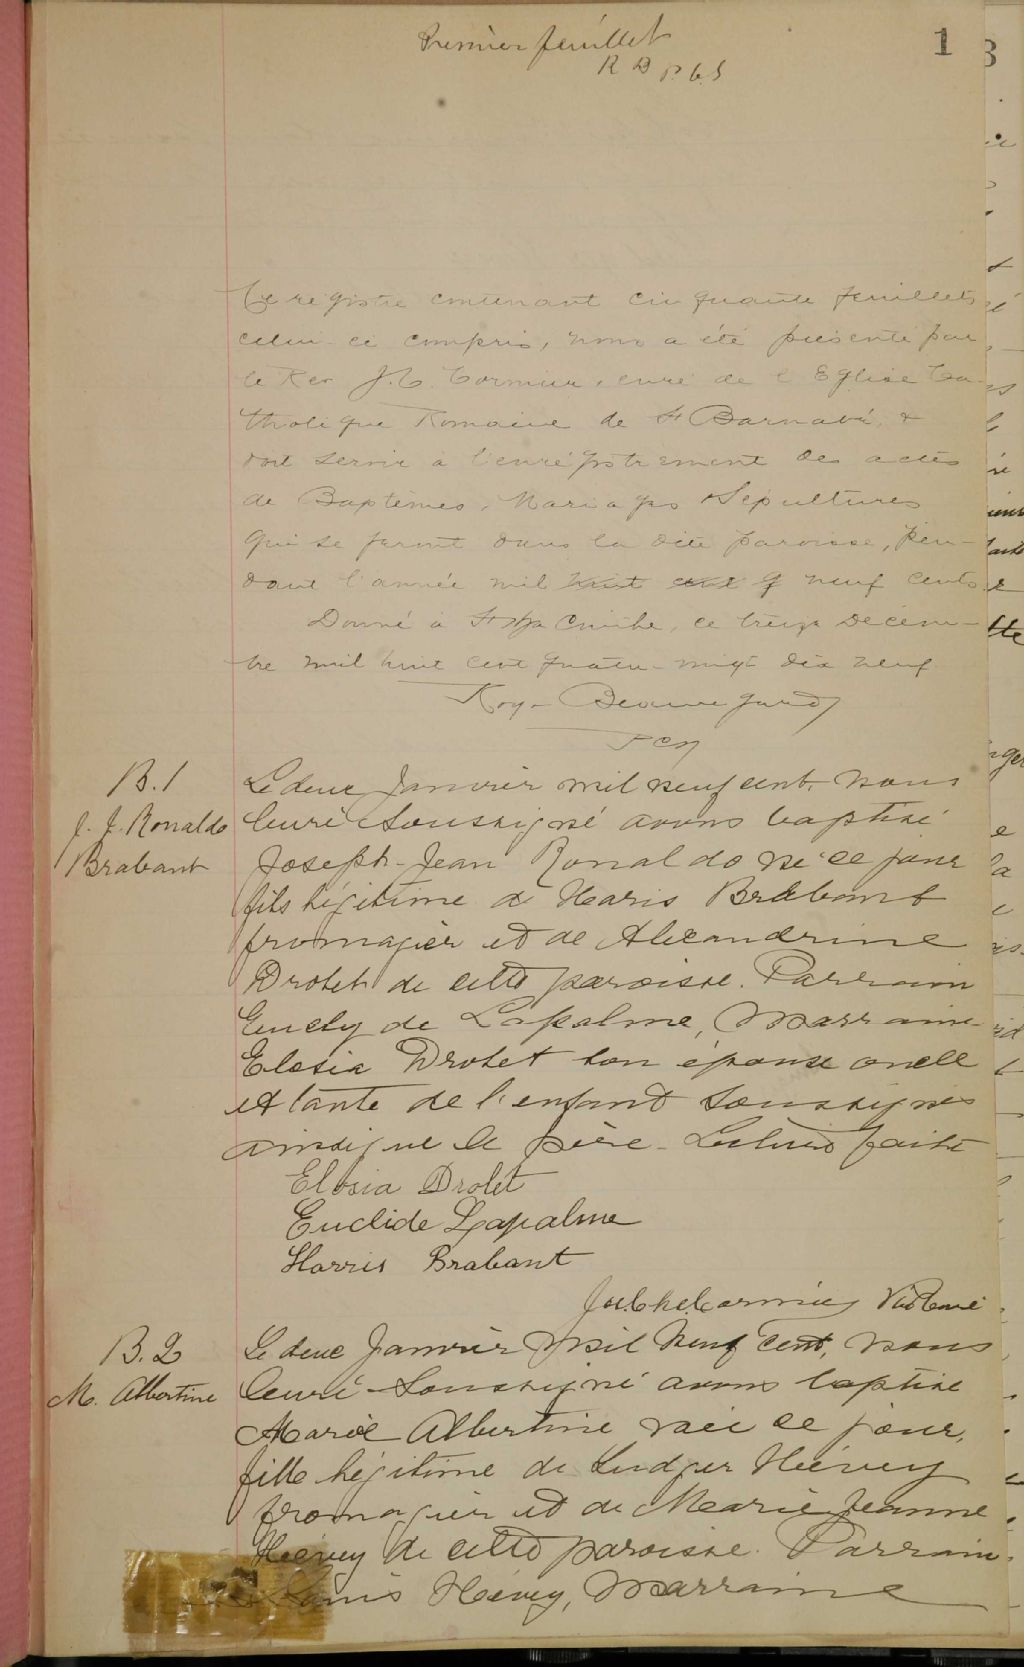 Premier feuillet
R B P. C. S
1
Ce registre contenant cinquante feuillets
celui-ci compris, nous a été présenté par
le Rev J. C. Cormier, curé de l'Eglise Ca-
tholique Romaine de St Barnabé, &
doit servir à l'enrégistrement des actes
de Baptêmes, Mariages Sépultures
qui se feront dans la dite paroisse, pen-
dant l'année mil huit cent neuf cents
Donné à St Hyacinthe, ce treize Décem-
bre mil huit cent quatre-vingt dix neuf
Roy-Beauregard
P C S
B. 1
J. J. Ronaldo
Brabant
Le deux Janvier mil neuf cent, nous
Curé soussigné avons baptisé
Joseph-Jean Ronaldo né ce jour
fils légitime de Haris Brabant
fromagier et de Alexandrine
Drolet de cette paroisse. Parrain
de Lapalme, Marraine
Elosia Drolet son épouse oncle
et tante de l'enfant soussignés
ainsi que le père - Lecture faite
Elosia Drolet
Euclide Lapalme
Harris Brabant
Cormier Ptre Curé
B. 2
M. Albertine
Le deux Janvier mil neuf cent, nous
Curé-Soussigné avons baptisé
Marie Albertine née ce jour,
fille légitime de Ludger Hévey
fromagier et de Marie Jeanne
Hévey de cette paroisse. Parrain
Louis Hévey, Marraine